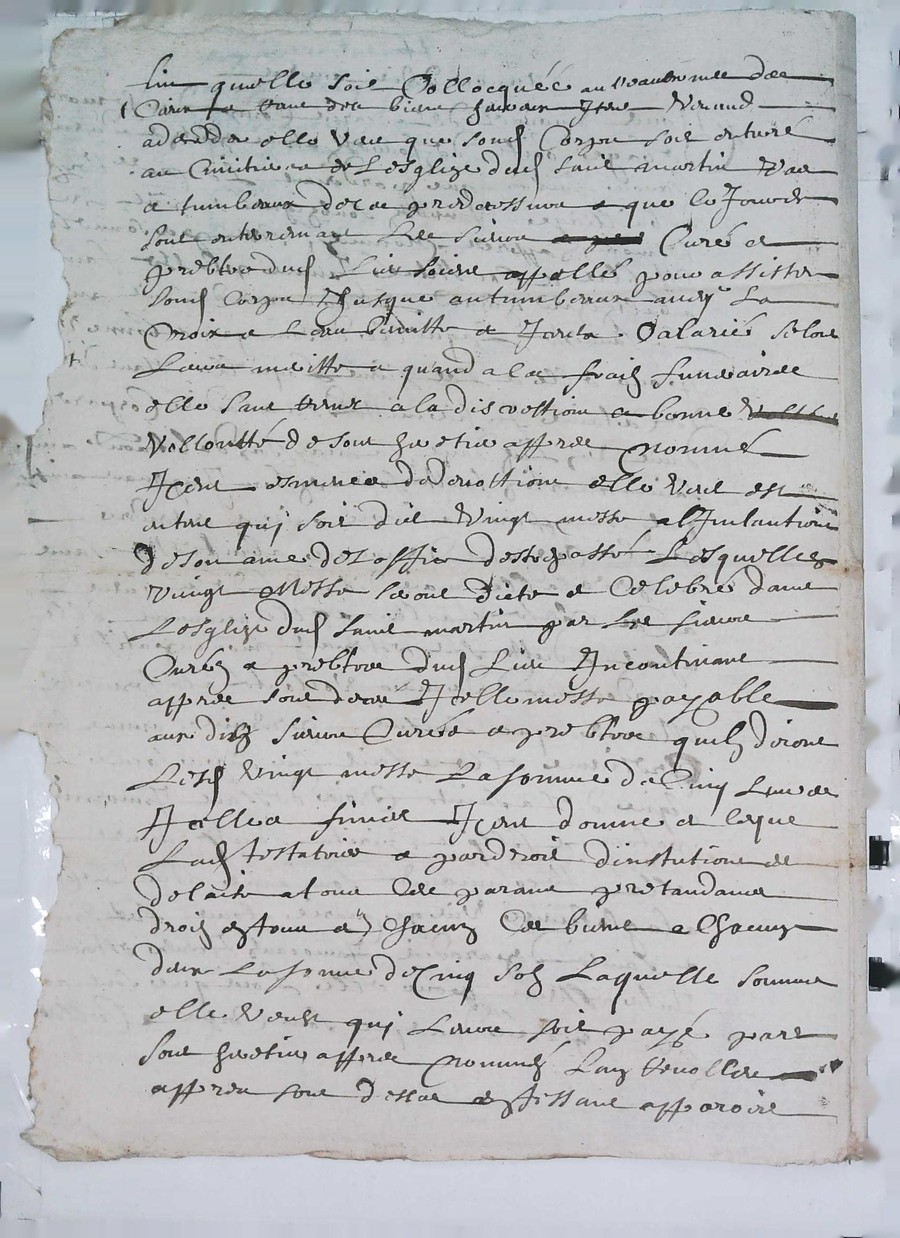 fin quelle soit Collocquée au Reaulme de
Cieux a tout des biens Item Venand
decede elle veu que sond Corps soit enterré
au Cimitiere de Lesglize dud saint martin
a tumbeaux de se predecesseurs a que le Jour de
sont enterrement Les sieurs Curés et
prebtre dud Lieu soient appellés pour assister
sond Corps Jusque au tumbeaux avecq La
Croix a Leau beniste a Iceulx Salariés selon
Leur meritte a quand a les frais funeraires
elle sant remet a la discrettion a bonne
Vollontté de sont heretier appres nommé
Item esmeue de devottion elle veut est
entent quj soit dict Vingt messe a lIntantion
de son ame de Loffice des trepassés Lesquelles
Vingt Messe seront dicte et Celebré dans
Lesglize dud saint martin par Les sieurs
Curés et prebtre dud Lieu Incontinant
appres sont deces Icelle messe payable
aux dits sieurs Curés et prebtre quils diront
Lesd Vingt messe La somme de Cinq Livres
Icelle finies Item donne et legue
Lad testatrice a par droit dinstutions et
de laits a tous Ces parans pretandans
droits et tous a Chacung Ces biens a Chacung
deux La somme de Cinq sols Laquelle somme
elle veut quj Leurs soit payé part
sont heretier appres nommés Lan revollue
appres sont desses et faisant apparoire